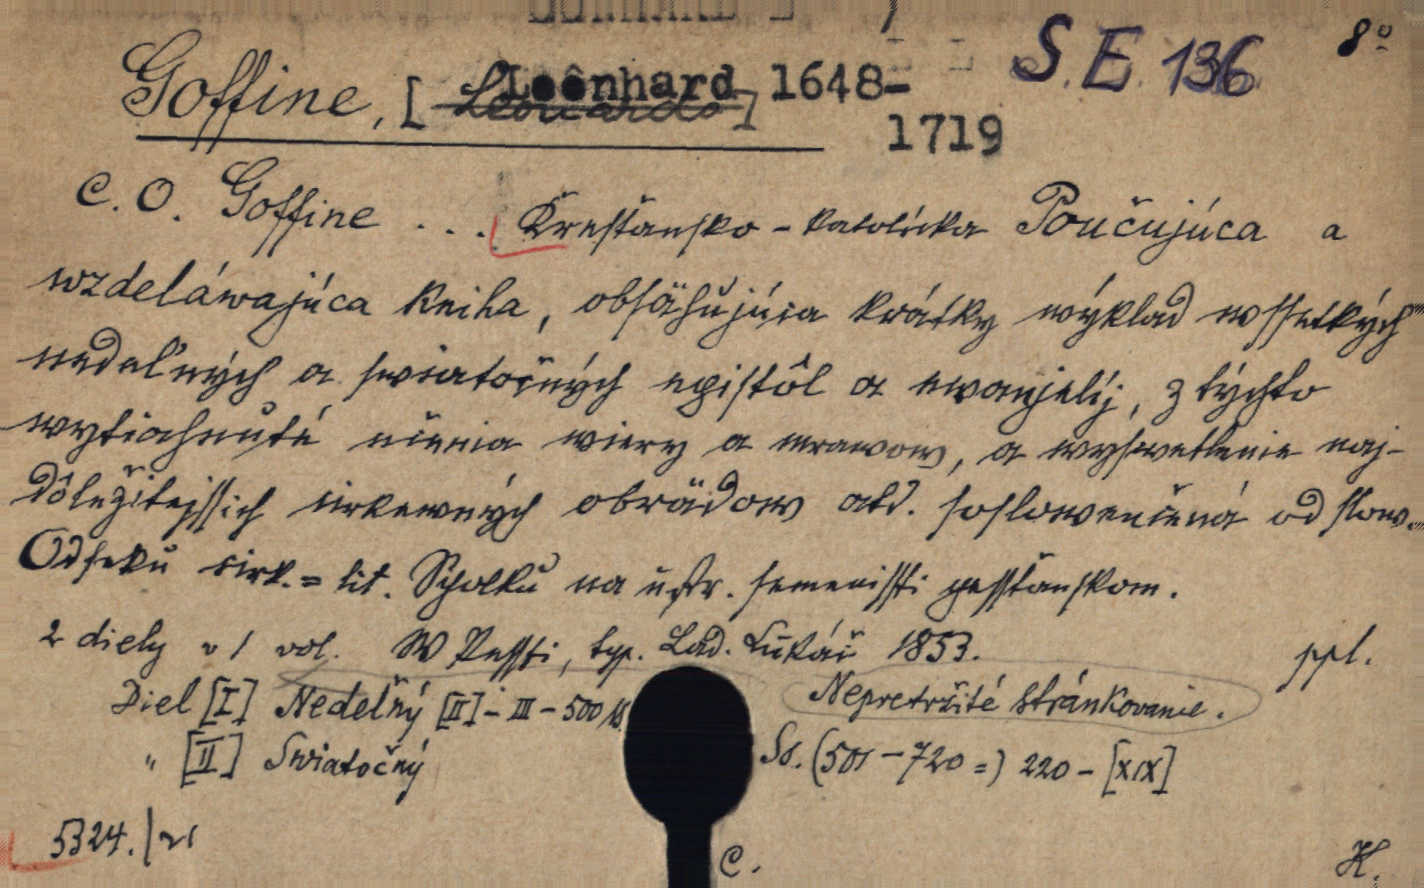 S. E. 136 8º
Goffine, [Leônhard] 1648-
1719
C. O. Goffine ... Kresťansko-katolícka Poučujúca a
wzdeláwajúca kniha, obsähujúca krátky wýklad wssetkých
nedeľných a swiatočných epistôl a ewanjelij, z týchto
wytiahnuté učenia wiery a mrawow, a wyswetlenie naj-
dôležitejssich cirkewných obrädow atď. soslowenčená od slow.
Odseku cirk.=lit. Spolku na ústr. semenissti pesstanskom.
2 diely v 1 vol. W Pessti, typ. Lad. Lukáč 1853. ppl.
Diel [I] Nedeľný [II]-III-500 Nepretržité stránkovanie.
" [II] Swiatočný Ss. (501-720=) 220-[XIX]
5324.
C. H.